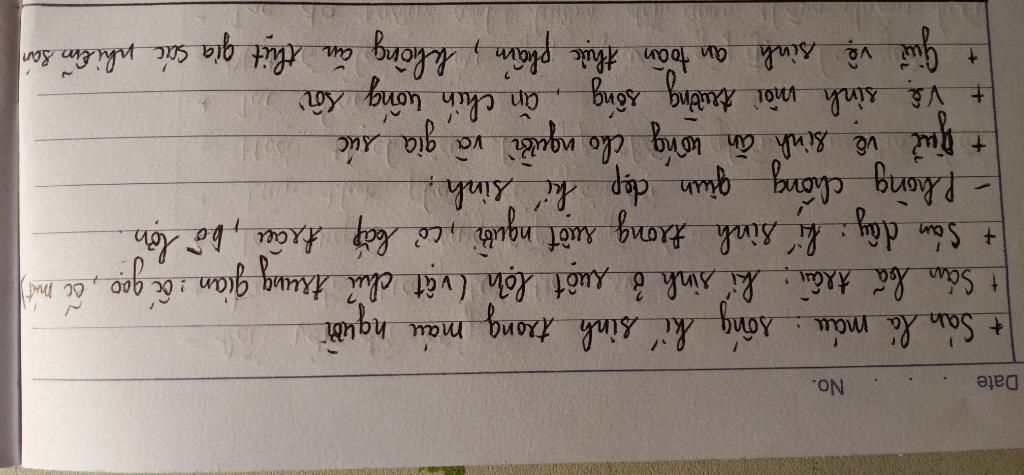 Date . . . . No.
+ Sán lá máu : sống kí sinh trong máu người
+ Sán bã trầu : kí sinh ở ruột lợn (vật chủ trung gian : ốc gạo, ốc mút)
+ Sán dây : kí sinh trong ruột người, cơ bắp trâu, bò lợn.
- Phòng chống giun dẹp kí sinh :
+ Giữ vệ sinh ăn uống cho người và gia súc
+ Vệ sinh môi trường sống, ăn chín uống sôi
+ Giữ vệ sinh an toàn thực phẩm, không ăn thịt gia súc nhiễm sán